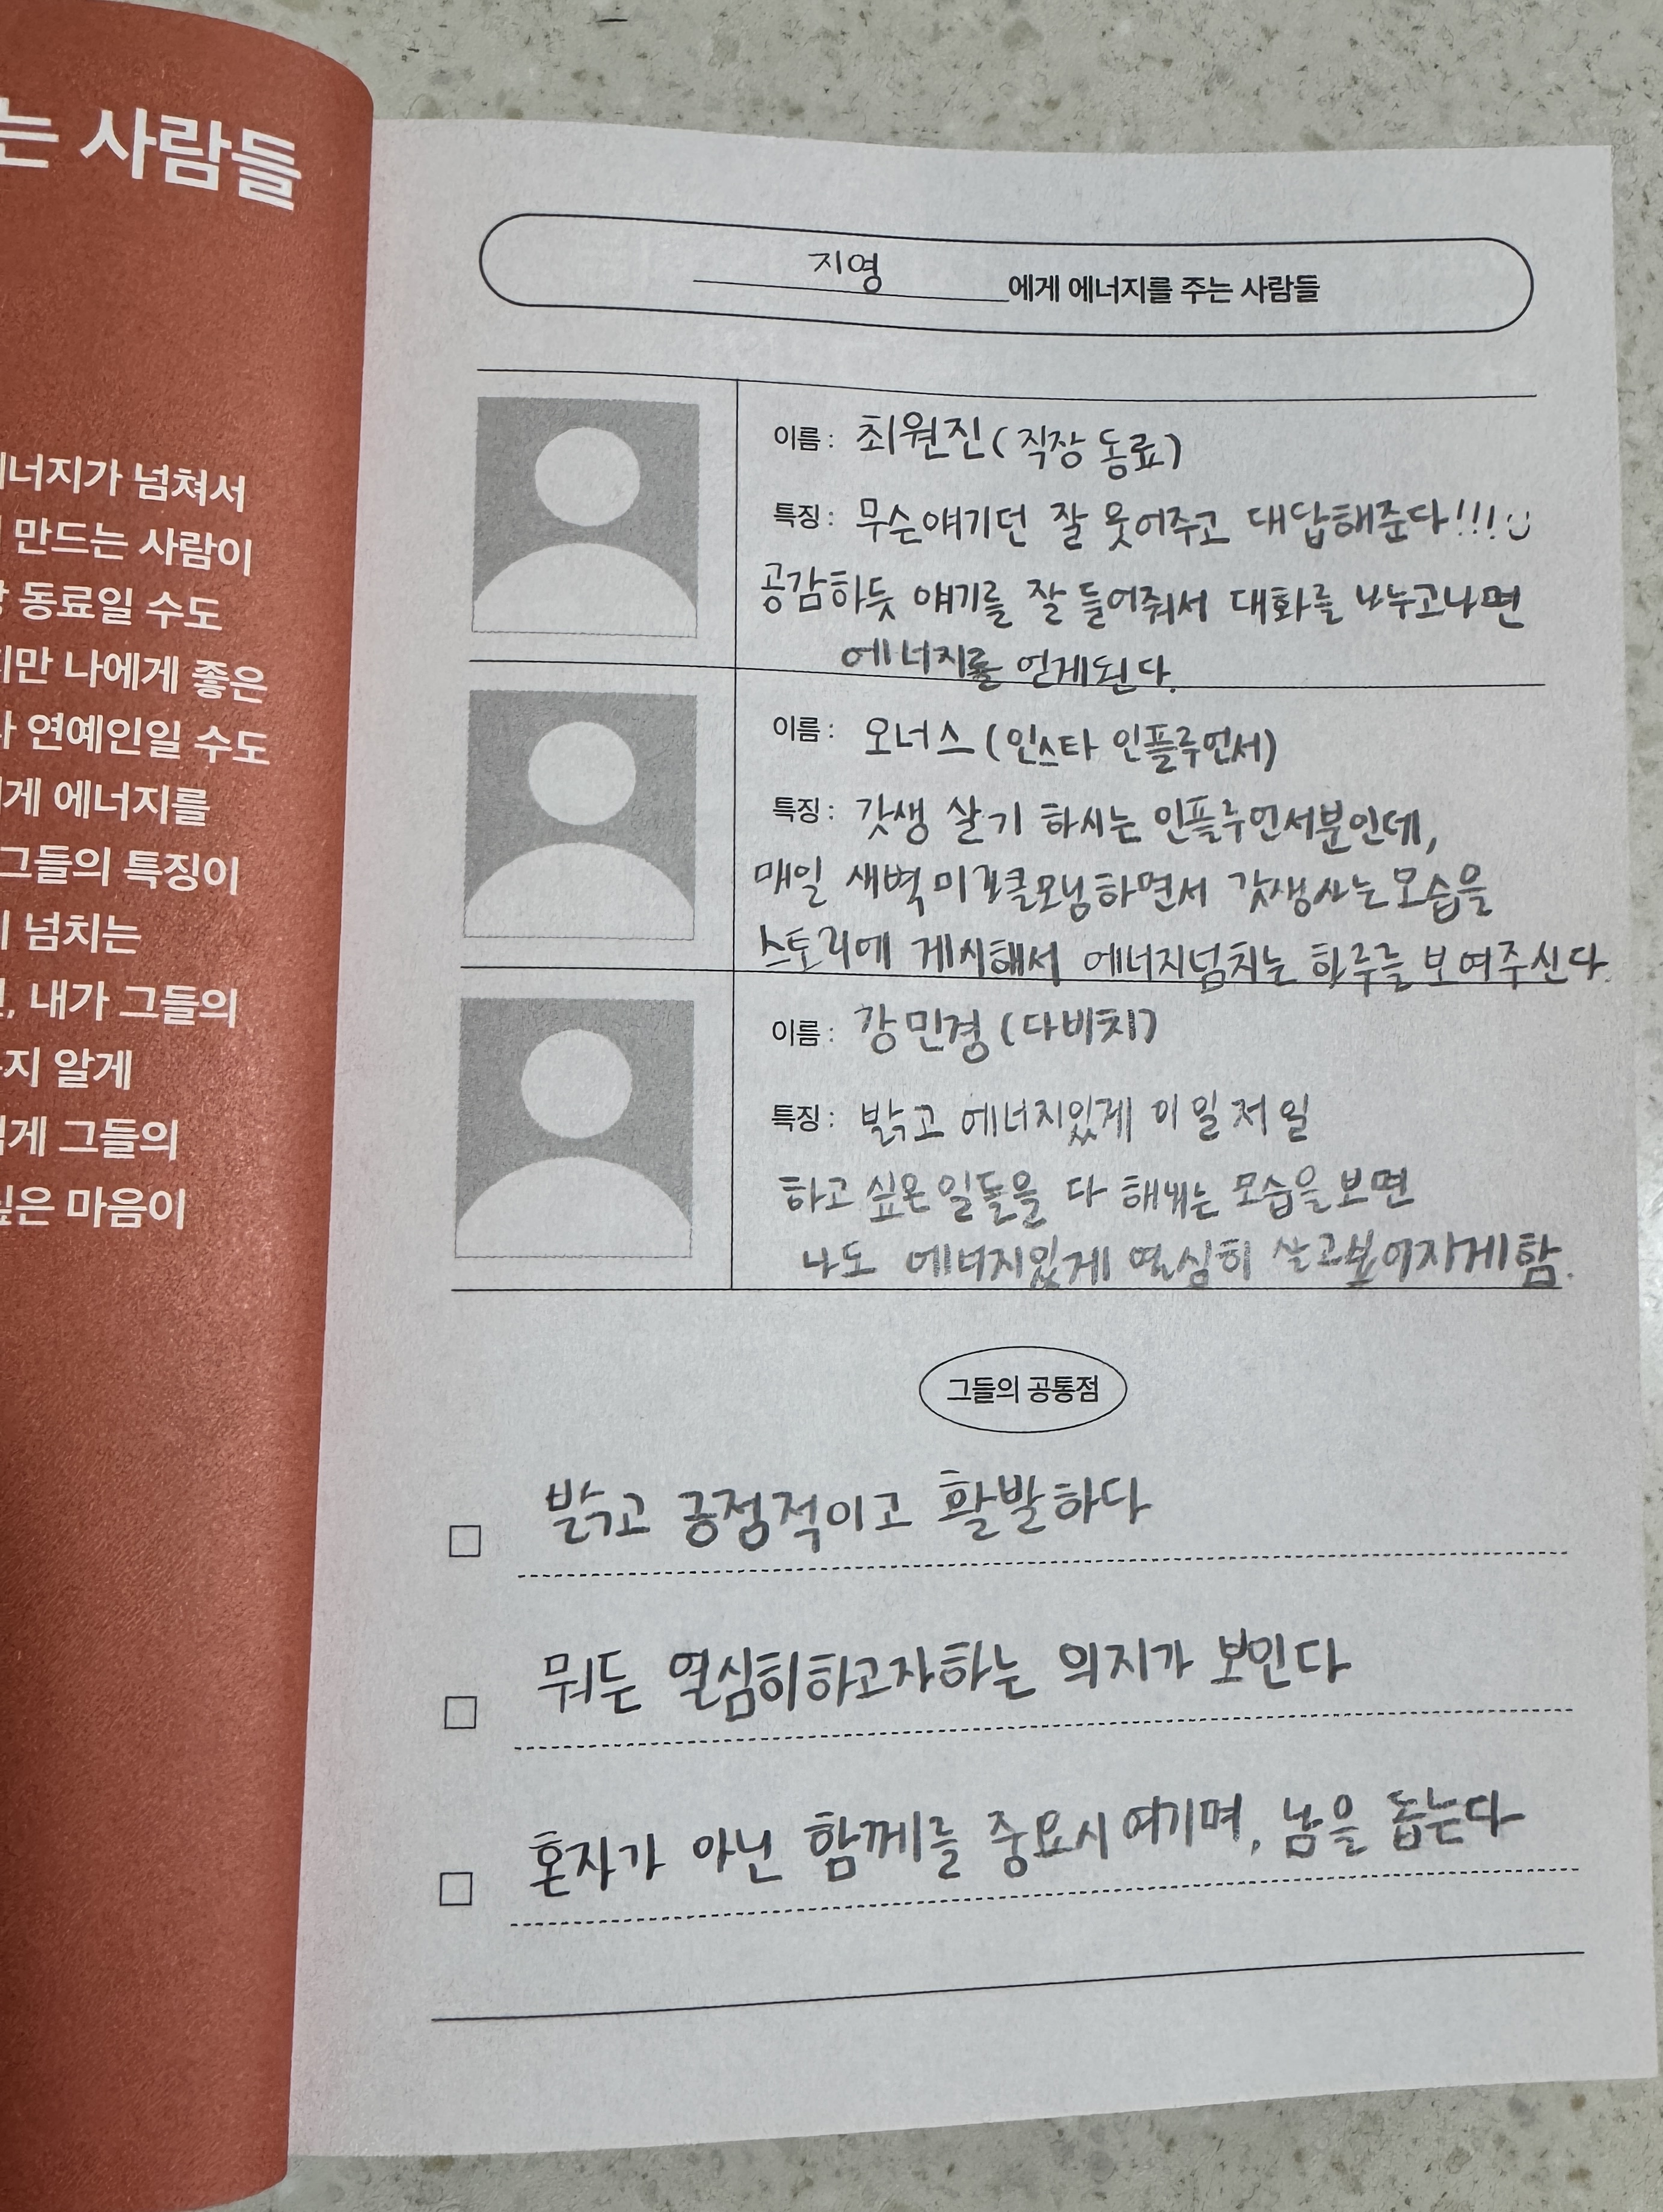 는 사람들
너지가 넘쳐서
만드는 사람이
동료일 수도
지만 나에게 좋은
연예인일 수도
게 에너지를
그들의 특징이
넘치는
, 내가 그들의
지 알게
게 그들의
싶은 마음이
지영 에게 에너지를 주는 사람들
이름 : 최원진 (직장 동료)
특징 : 무슨얘기던 잘 웃어주고 대답해준다!!!
공감하듯 얘기를 잘 들어줘서 대화를 나누고나면
에너지를 얻게된다.
이름 : 오너스 (인스타 인플루언서)
특징 : 갓생 살기 하시는 인플루언서분인데,
매일 새벽 미라클모닝하면서 갓생사는모습을
스토리에 게시해서 에너지넘치는 하루를 보여주신다.
이름 : 강민경 (다비치)
특징 : 밝고 에너지있게 이일저일
하고 싶은일들을 다 해내는 모습을보면
나도 에너지있게 열심히 살고보아지게함.
그들의 공통점
밝고 긍정적이고 활발하다
뭐든 열심히하고자하는 의지가 보인다
혼자가 아닌 함께를 중요시 여기며, 남을 돕는다